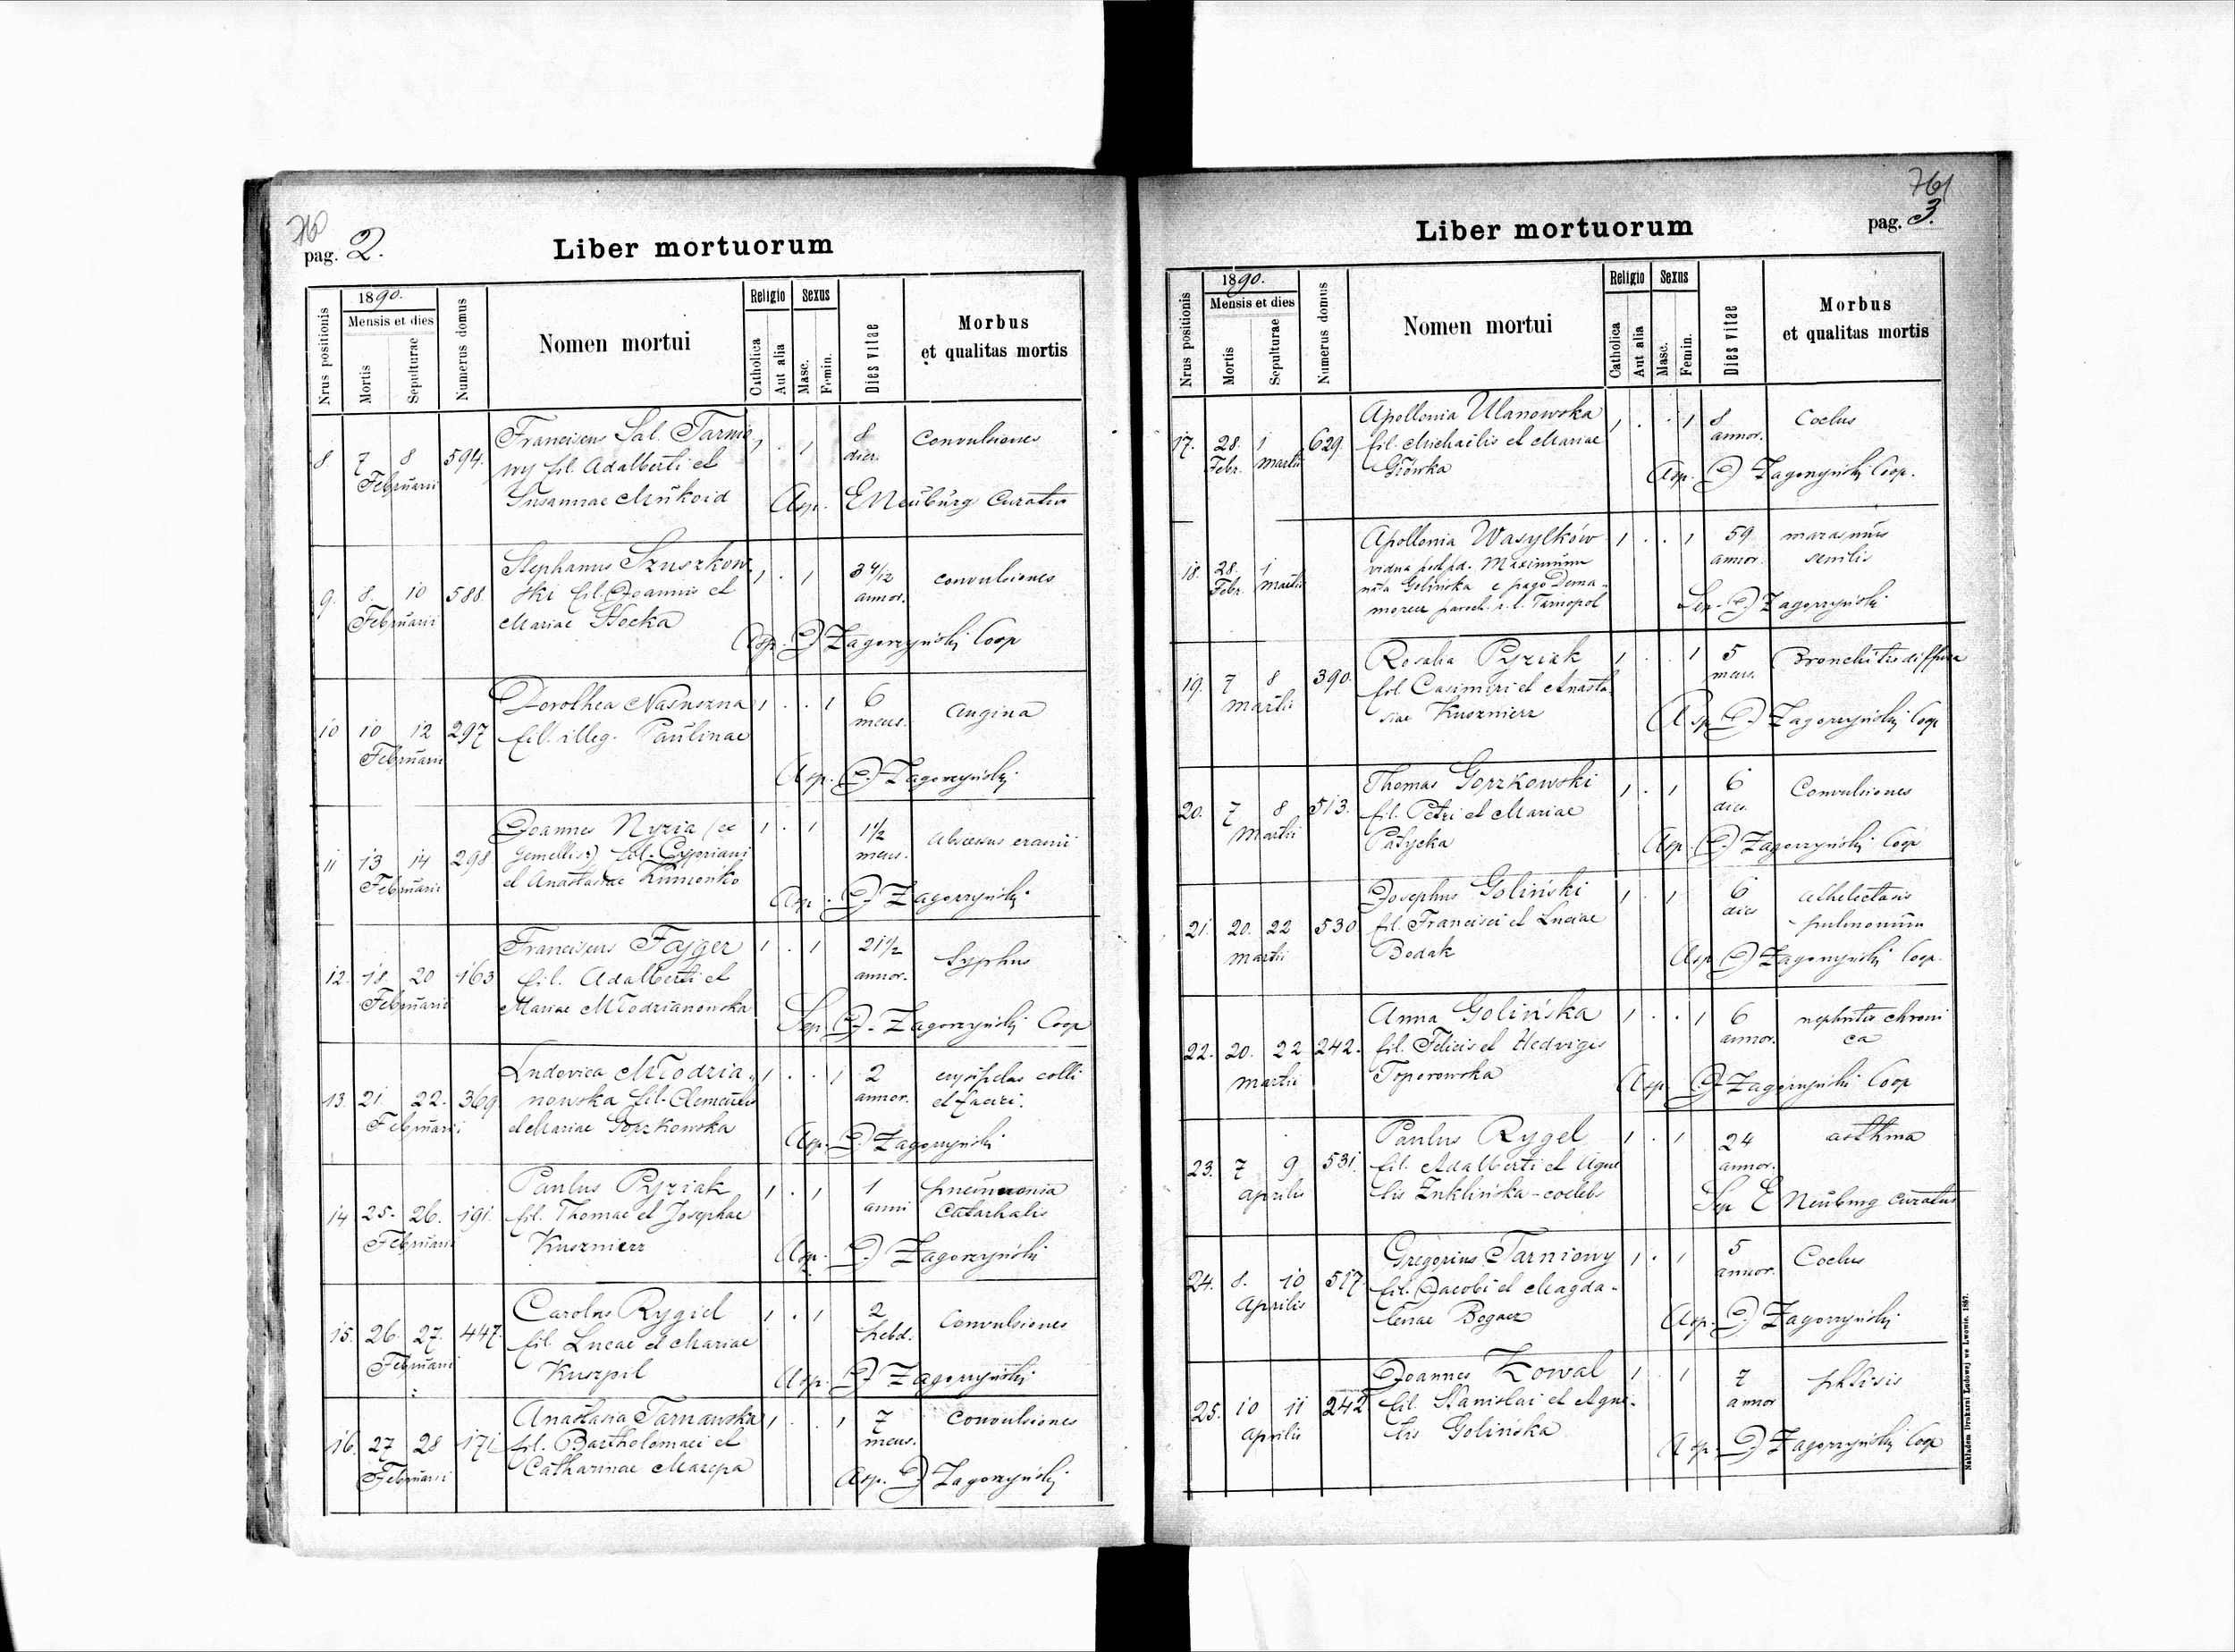 760
pag. 2.
Liber mortuorum
Nrus positionis
1890.
Mensis et dies
Mortis
Sepulturae
Numerus domus
Nomen mortui
Religio
Catholica
Aut alia
Sexus
Masc.
Femin.
Dies vitae
Morbus
et qualitas mortis
8. 7 8 Februarii 594.
Franciscus Sal. Tarnio
wy fil. Adalberti et
Susannae Mukoid
1 . 1
8 dier.
Convulsiones
Asp. E Neuburg Curatus
9. 8. 10 Februarii 588.
Stephanus Szuszkow
ski fil. Joannis et
Mariae Hocka
1 . 1
3 4/12 annor.
convulsiones
Asp. Zagorzyński Coop
10 10 12 Februarii 297
Dorothea
fil. illeg. Paulinae
1 . . 1
6 mens.
Angina
Asp. Zagorzyński
11 13 14 Februarii 298
Joannes Nyzia (ex
gemellis) fil. Cypriani
et Anastasiae
1 . 1
1 1/2 mens.
Abscessus cranii
Asp. Zagorzyński
12. 18 20 Februarii 163
Franciscus Fajger
fil. Adalberti et
Mariae Młodzianowska
1 . 1
21 1/2 annor.
Typhus
Sep. Zagorzyński Coop
13. 21 22. Februarii 369
Ludovica Młodzia-
nowska fil. Clementis
et Mariae Gorzkowska
1 . . 1
2 annor.
erysipelas colli
et faciei.
Asp. Zagorzyński
14 25. 26. Februarii 191.
Paulus Pyziak
fil. Thomae et Josephae
Kusznierz
1 . 1
1 anni
pneumonia
catarhalis
Asp. Zagorzyński
15. 26. 27. Februarii 447.
Carolus Rygiel
fil. Lucae et Mariae
Kuszpil
1 . 1
2 hebd.
Convulsiones
Asp. Zagorzyński
16. 27 28 Februarii 171.
Anastasia Tarnawska
fil. Bartholomaei et
Catharinae Mazepa
1 . . 1
7 mens.
Convulsiones
Asp. Zagorzyński
761
pag. 3.
Liber mortuorum
Nrus positionis
1890.
Mensis et dies
Mortis
Sepulturae
Numerus domus
Nomen mortui
Religio
Catholica
Aut alia
Sexus
Masc.
Femin.
Dies vitae
Morbus
et qualitas mortis
17. 28. Febr. 1 Martii 629.
Apollonia Ulanowska
fil. Michaëlis et Mariae
Główka
1 . . 1
8 annor.
Coclus
Asp. Zagorzyński Coop.
18. 28. Febr. 1 Martii
Apollonia Wasylków
vidua post pd. Maximum
nata Golińska e pago Doma-
morycz paroch. r. l. Tarnopol
1 . . 1
59 annor.
marasmus
senilis
Sep. Zagorzyński
19. 7 8 Martii 390.
Rosalia Pyziak
fil. Casimiri et Anasta-
siae Kusznierz
1 . . 1
5 mens.
Bronchitis diffusa
Asp. Zagorzyński Coop
20. 7 8 Martii 513.
Thomas Gorzkowski
fil. Petri et Mariae
Patycka
1 . 1
6 dies.
Convulsiones
Asp. Zagorzyński Coop
21. 20. 22 Martii 530
Josephus Goliński
fil. Francisci et Luciae
Bodak
1 . 1
6 dies
Athelectasis
pulmonum
Asp. Zagorzyński Coop.
22. 20. 22 Martii 242.
Anna Golińska
fil. Felicis et Hedvigis
Toporowska
1 . . 1
6 annor.
nephritis chroni
ca
Asp. Zagorzyński Coop
23. 7 9 Aprilis 531.
Paulus Rygel
fil. Adalberti et Agne
tis Zuklińska - coelebs
1 . 1
24 annor.
asthma
Sep. E Neuburg curatus
24. 8. 10 Aprilis 517
Gregorius Tarniowy
fil. Jacobi et Magda-
lenae Bogacz
1 . 1
5 annor.
Coclus
Asp. Zagorzyński
25. 10 11 Aprilis 242
Joannes Kowal
fil. Stanislai et Agne-
tis Golińska
1 . 1
7 annor
phtisis
Asp. Zagorzyński Coop
Nakładem Drukarni Ludowej we Lwowie. 1887.